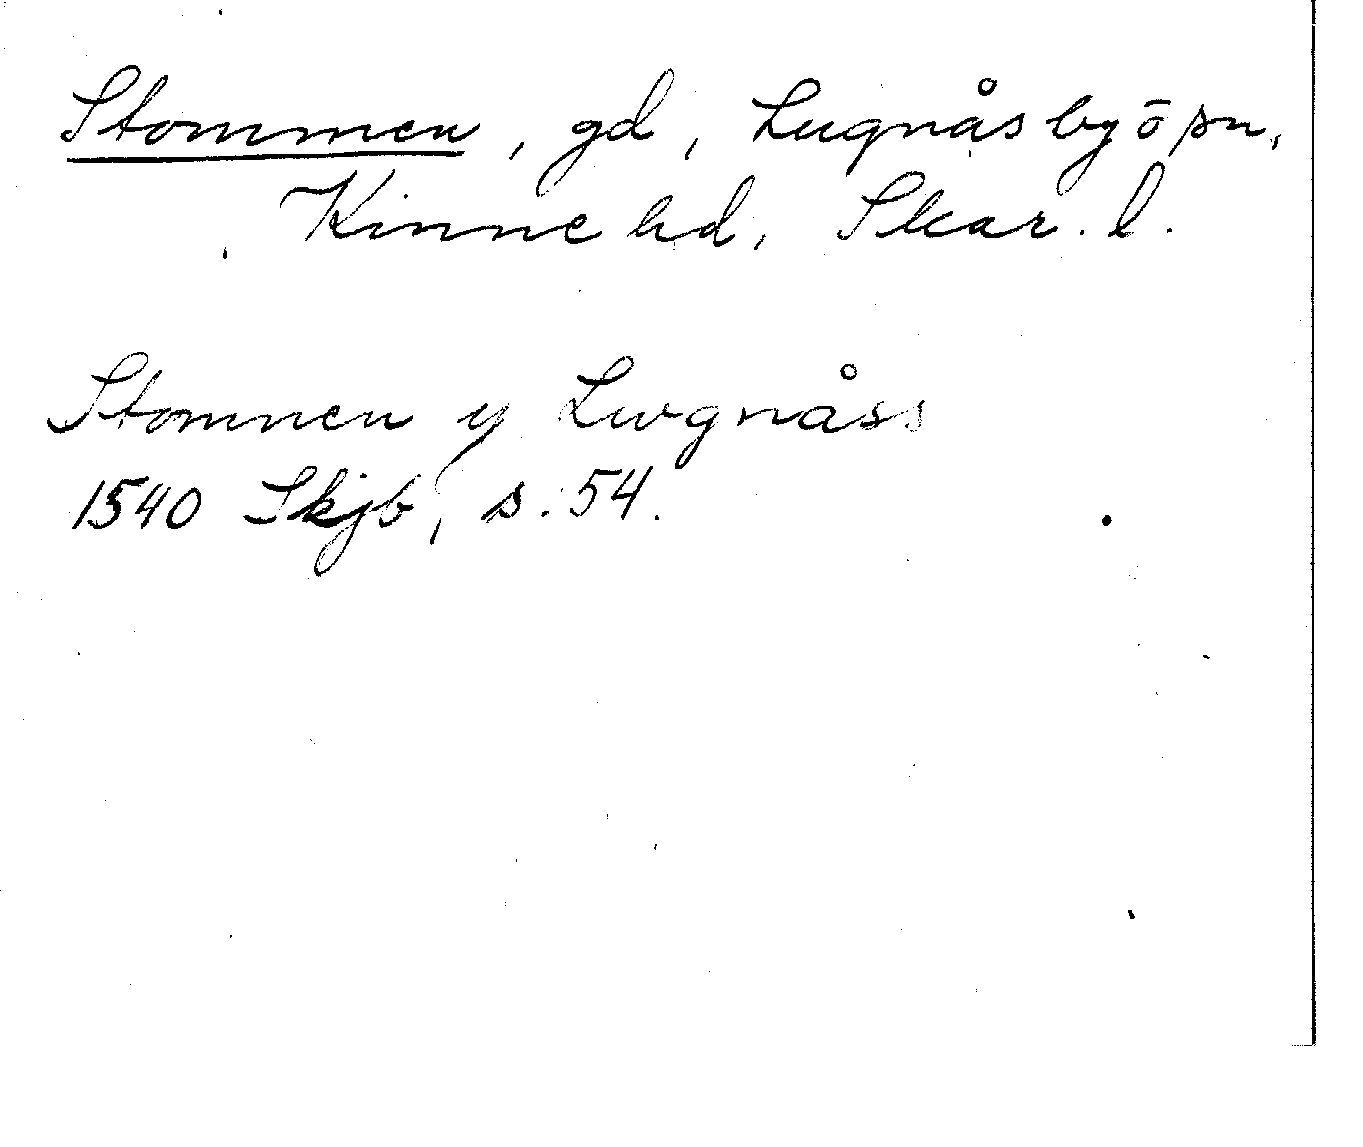 Stommen, gd, Lugnås by ō sn,
Kinne hd, Skar. l.
Stomnen y Lwgnåss
1540 Skjb, s. 54.